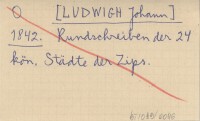 O [LUDWIGH Johann]
1842. Rundschreiben der 24
kön. Städte der Zips.